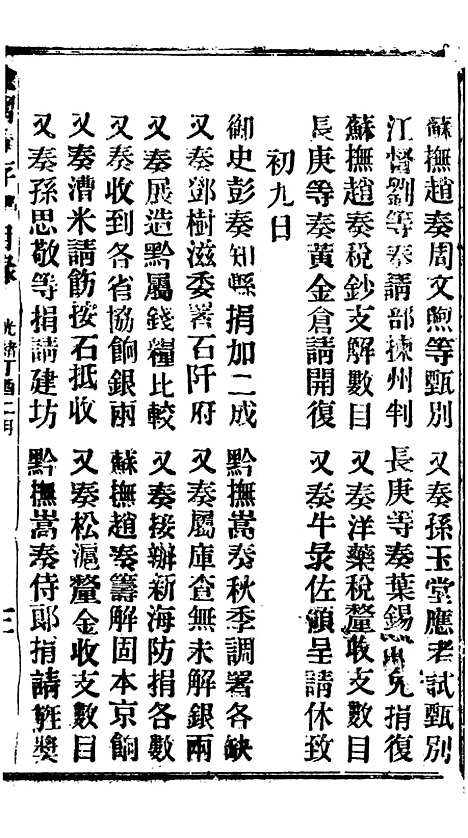 蘇撫趙奏周文煦等甄別
又奏孫玉堂應考試甄別
江督劉等奏請部揀州判
長庚等奏葉錫免捐復
蘇撫趙奏稅鈔支解數目
又奏洋藥稅釐收支數目
長庚等奏黃金倉請開復
又奏牛彔佐領呈請休致
初九日
御史彭奏知縣捐加二成
黔撫嵩奏秋季調署各缺
又奏鄧樹滋委署石阡府
又奏屬庫查無未解銀兩
又奏展造黔屬錢糧比較
又奏接辦新海防捐各數
又奏收到各省協餉銀兩
蘇撫趙奏籌解固本京餉
又奏漕米請飭按石抵收
又奏松滬釐金收支數目
又奏孫思敬等捐請建坊
黔撫嵩奏侍郎捐請旌獎
目錄
光緒丁酉二月